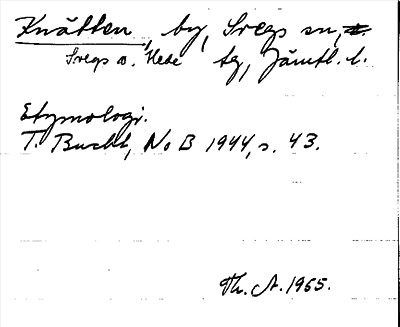 Knätten, by, Svegs sn,
Svegs o. Hede tg, Jämtl. l.
Etymologi.
T. Bucht, NoB 1944, s. 43.
Th. A. 1965.